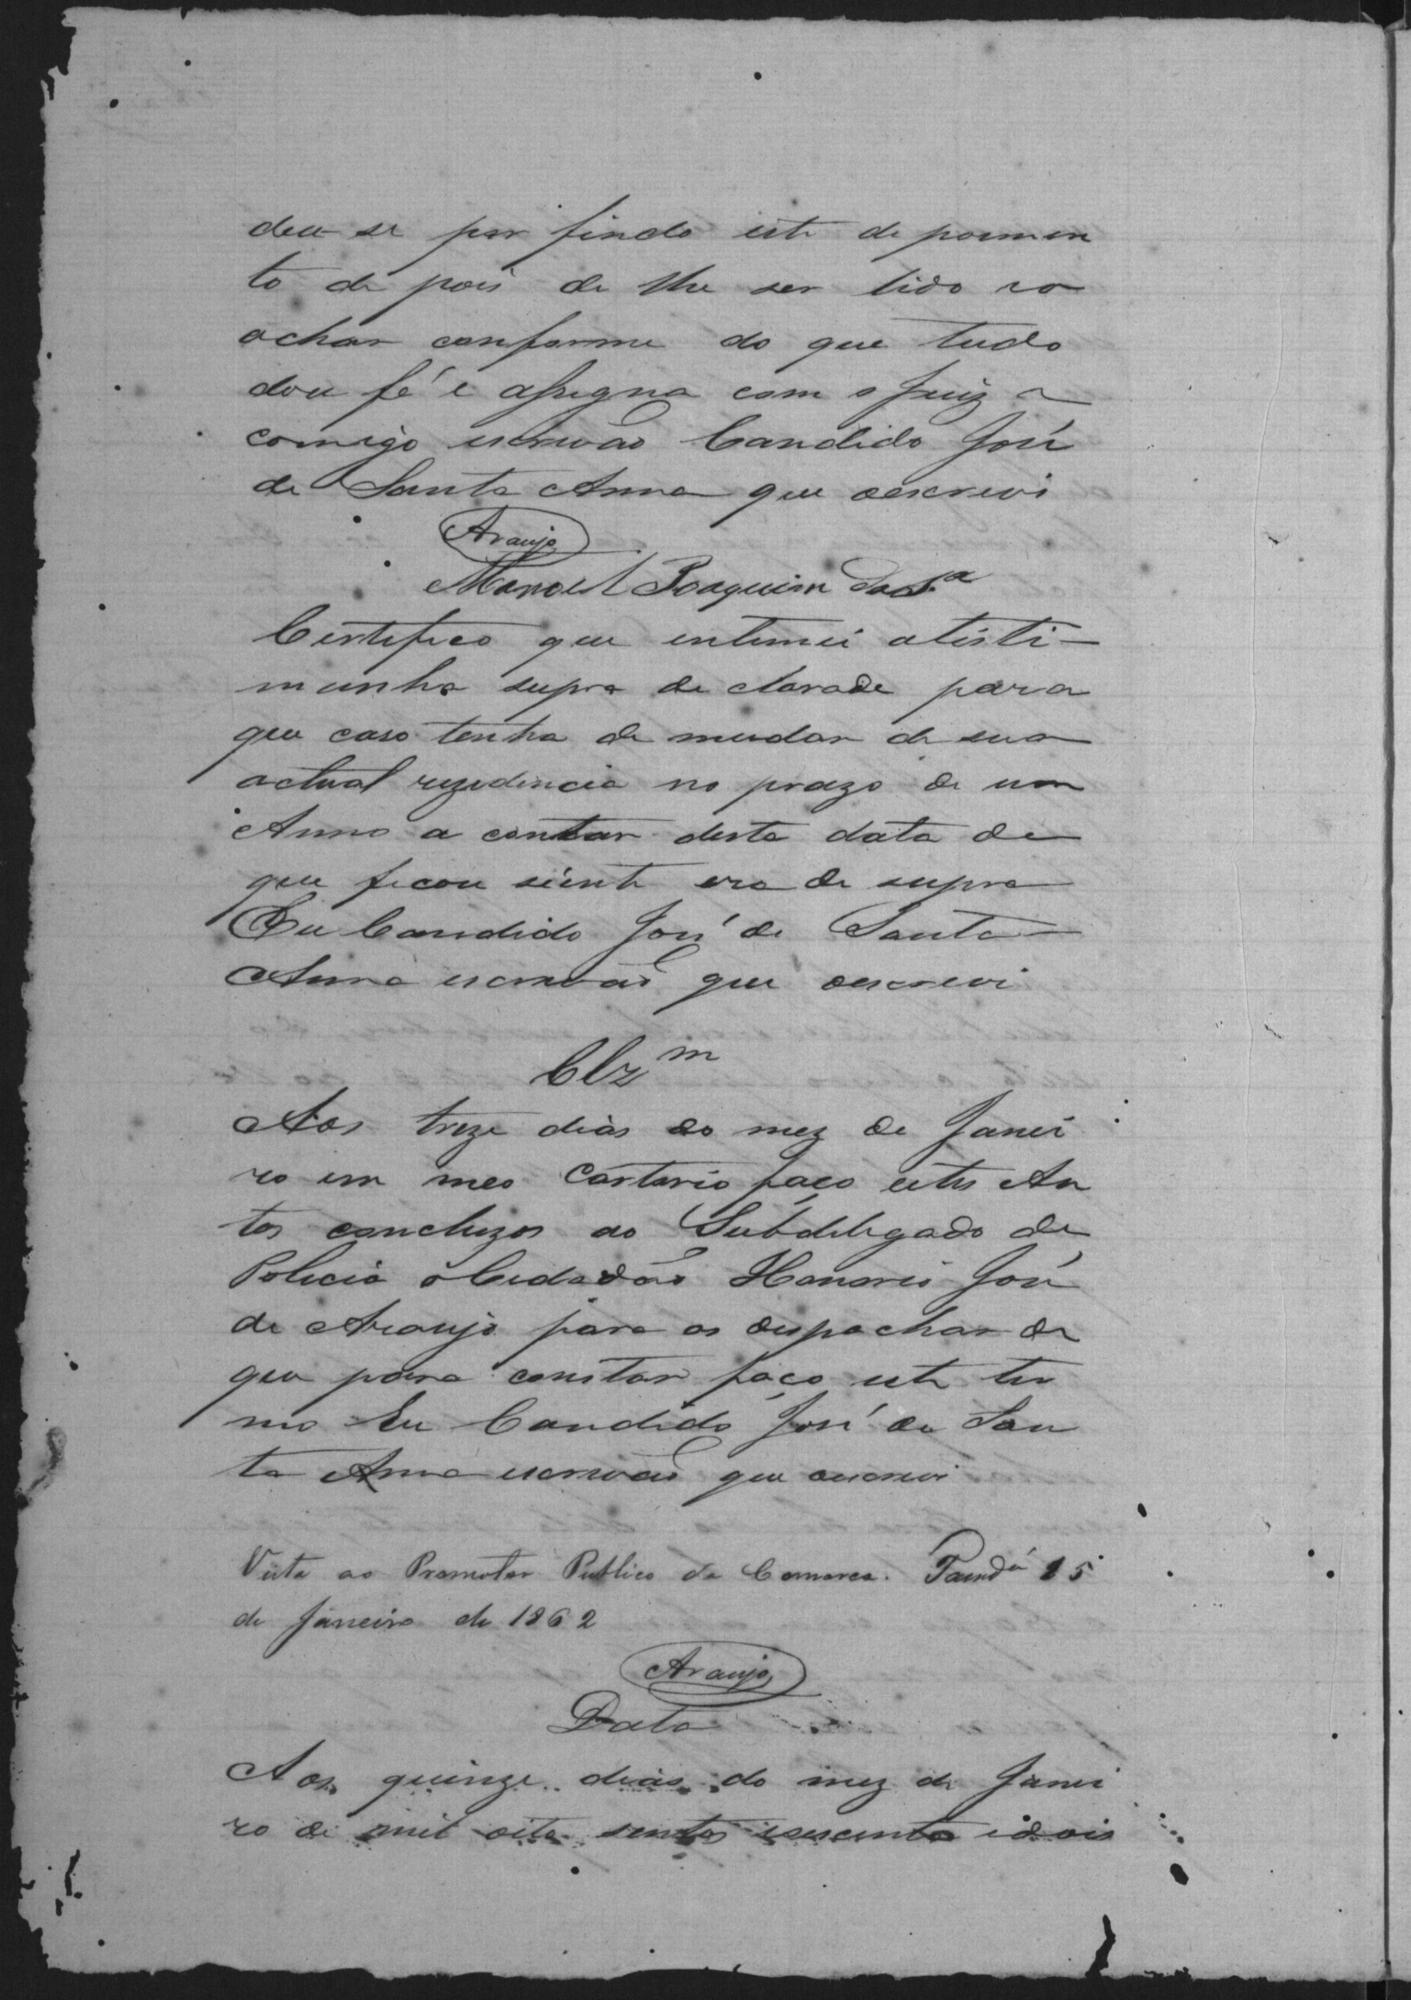 deu-se por findo este depoimen
to de pois de lhe ser lido eo
achar conforme do que tudo
dou fé e assigna com o Juiz e
comigo escrivão Candido José
de Santa Anna que oescrevi
Araujo
Manoel Joaquim da S.ª
Certefico que entemei atisti-
munha supra de clarada para
que caso tenha de mudar de sua
actual rezedencia no prazo de um
Anno a contar desta data de
que ficou siente era de supra
Eu Candido José de Santa
Anna escrivão que oescrevi
Clz m
Aos treze dias do mez de Janei
ro em meo Cartorio faço estes Au
tos concluzos ao Subdelegado de
Policia o Cidadão Honorio José
de Araujo para os despachar de
que para constar faço este ter
mo Eu Candido José de San
ta Anna escrivão que oescrevi
Vista ao Promotor Publico da Comarca. 15
de Janeiro de 1862
Araujo
Data
Aos quinze dias do mez de Janei
ro de mil oito sentos esescenta edois